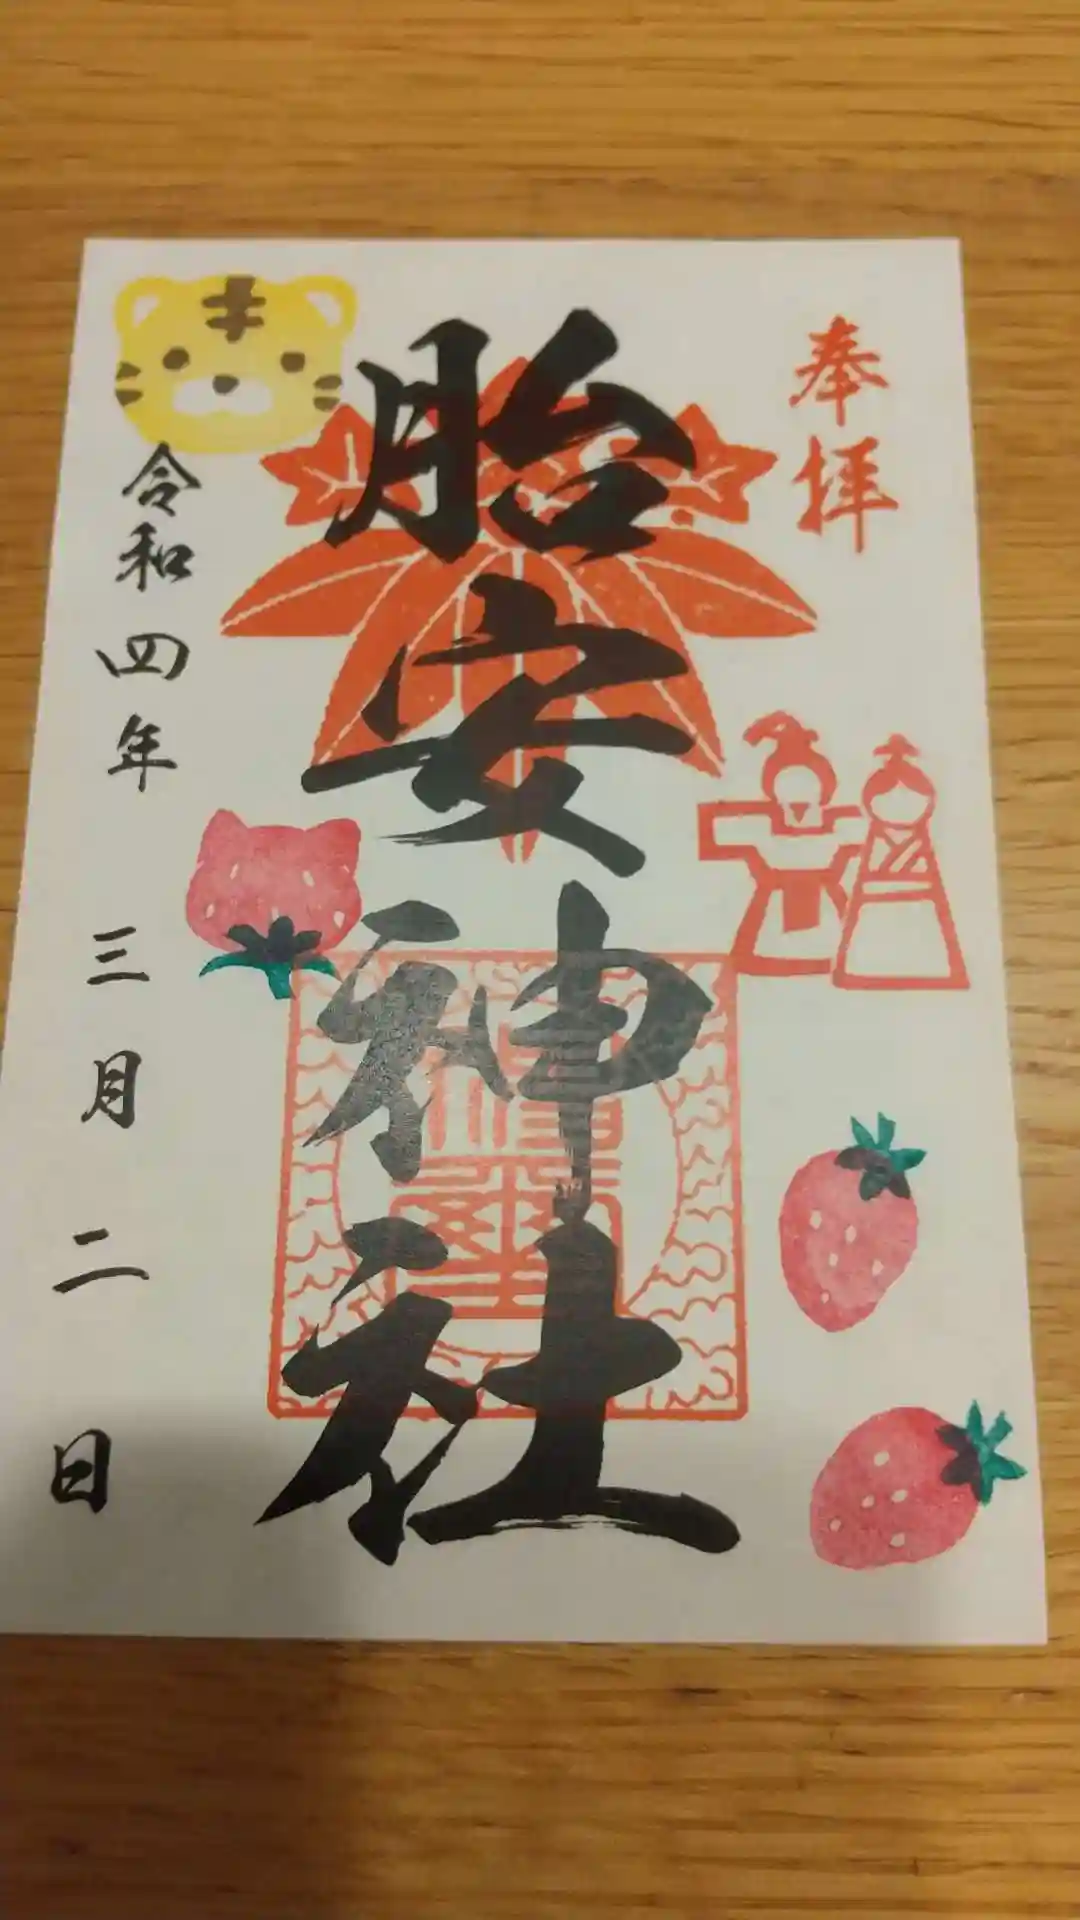 奉拝
胎安神社
令和四年三月二日